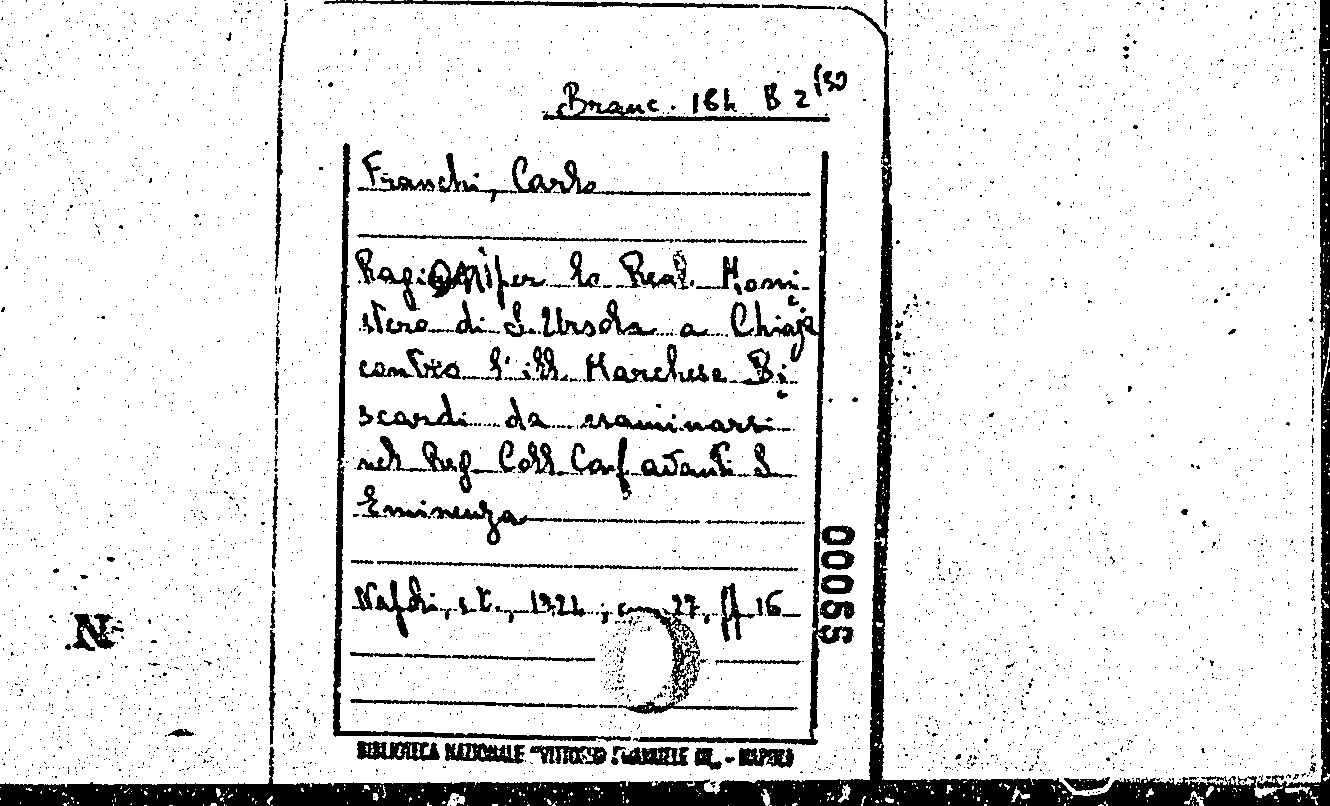 Branc. 16h B 2 (50
Franchi, Carlo
Ragioni per lo Real. Moni-
stero di S. Ursola a Chiaja
contro l'ill. Marchese Bi-
scardi da esaminarsi
nel Reg. Coll. avanti S.
Eminenza
Napoli, s. t., ; cm. 27, ff 16
00055
N
BIBLIOTECA NAZIONALE "VITTORIO EMANUELE III" - NAPOLI